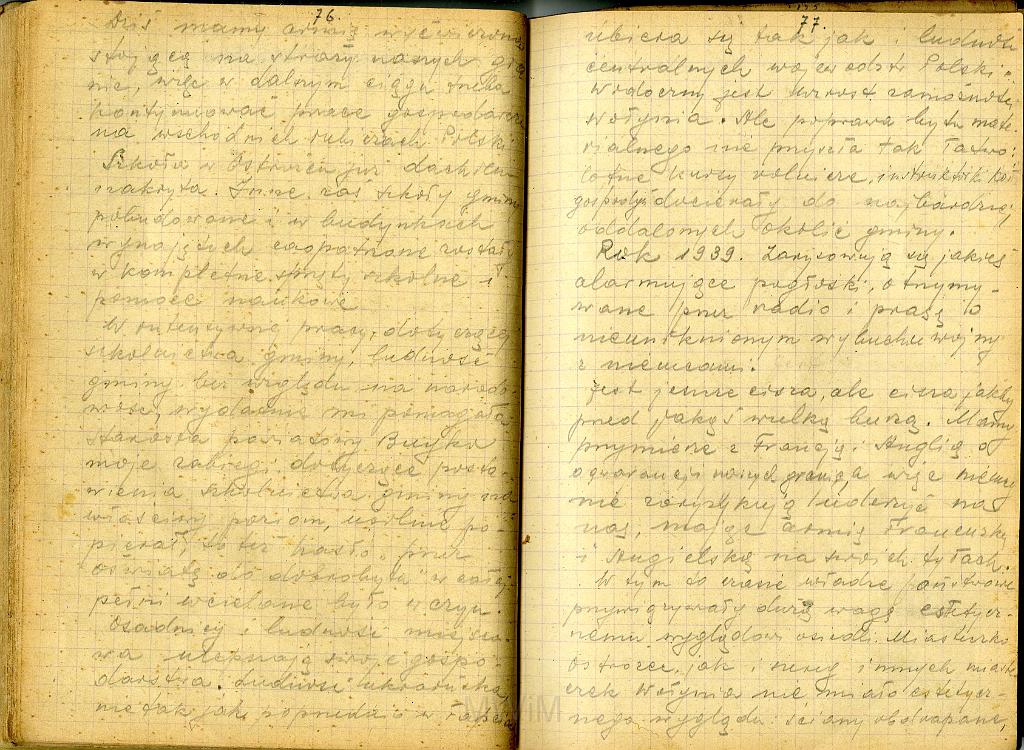 76.
Dziś mamy armię wyćwiczoną
stojącą na straży naszych gra-
nic, więc w dalszym ciągu trzeba
kontynuować prace gospodarcze
na wschodnich rubieżach Polski.
Szkoła w Ostrożcu już dachem
nakryta. Inne zaś szkoły gminy
pobudowane i w budynkach
wynajętych zaopatrzone zostały
w kompletne sprzęty szkolne i
pomoce naukowe.
W intensywnej pracy, dotyczącej
szkolnictwa gminy, ludność
gminy bez względu na narodo-
wość, wydatnie mi pomagała
starosta powiatowy
moje zabiegi, dotyczące posta-
wienia szkolnictwa gminy na
właściwy poziom, usilnie po-
pierał, to też hasło "przez
oświatę do dobrobytu" w całej
pełni wcielane było w czyn.
Osadnicy i ludność miejsco-
wa ulepszają swoje gospo-
darstwa. Ludność ukraińska,
nie tak jak poprzednio w łapcie
77.
ubiera się tak jak i ludność
centralnych województw Polski.
Widoczny jest wzrost zamożności
Wołynia. Ale poprawa bytu mate-
rialnego nie przyszła tak łatwo:
lotne kursy rolnicze, instruktorki kół
gospodyń docierały do najbardziej
oddalonych okolic gminy.
Rok 1939. Zarysowują się jakieś
alarmujące pogłoski, otrzymy-
wane przez radio i prasę o
nieuniknionym wybuchu wojny
z niemcami.
Jest jeszcze cisza, ale cisza jakby
przed jakąś wielką burzą. Mamy
przymierze z Francją i Anglią o
gwarancji naszych granic, a więc niemcy
nie zaryzykują uderzyć na
nas, mając armię Francuską
i Angielską na swoich tyłach.
W tym to czasie władze państwowe
przywiązywały dużą wagę estetycz-
nemu wyglądowi osiedli. Miasteczko
Ostrożec, jak i szereg innych miaste-
czek Wołynia nie miało estetycz-
nego wyglądu: ściany obdrapane,